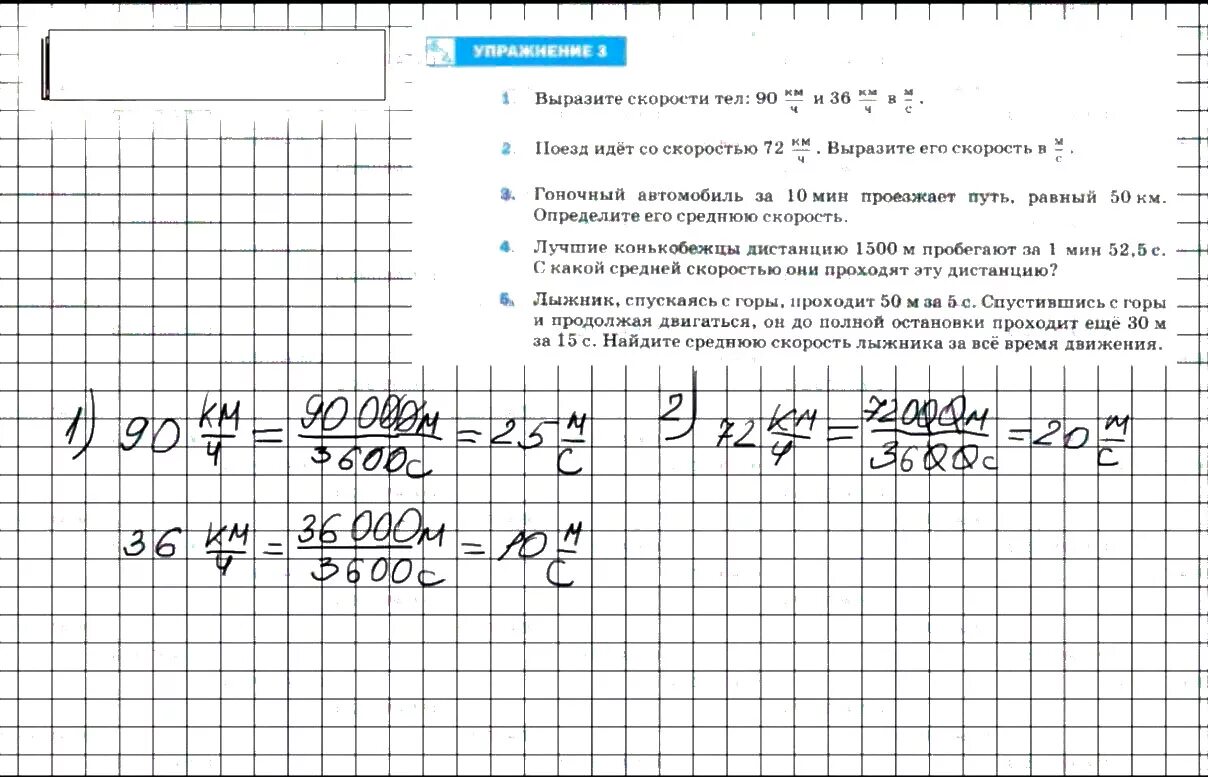 УПРАЖНЕНИЕ 3
1. Выразите скорости тел: 90 км/ч и 36 км/ч в м/с.
2. Поезд идёт со скоростью 72 км/ч. Выразите его скорость в м/с.
3. Гоночный автомобиль за 10 мин проезжает путь, равный 50 км.
Определите его среднюю скорость.
4. Лучшие конькобежцы дистанцию 1500 м пробегают за 1 мин 52,5 с.
С какой средней скоростью они проходят эту дистанцию?
5. Лыжник, спускаясь с горы, проходит 50 м за 5 с. Спустившись с горы
и продолжая двигаться, он до полной остановки проходит ещё 30 м
за 15 с. Найдите среднюю скорость лыжника за всё время движения.
1) 90 км/ч = 90 000м/3600с = 25 м/с
36 км/ч = 36 000м/3600с = 10 м/с
2) 72 км/ч = 72000м/3600с = 20 м/с